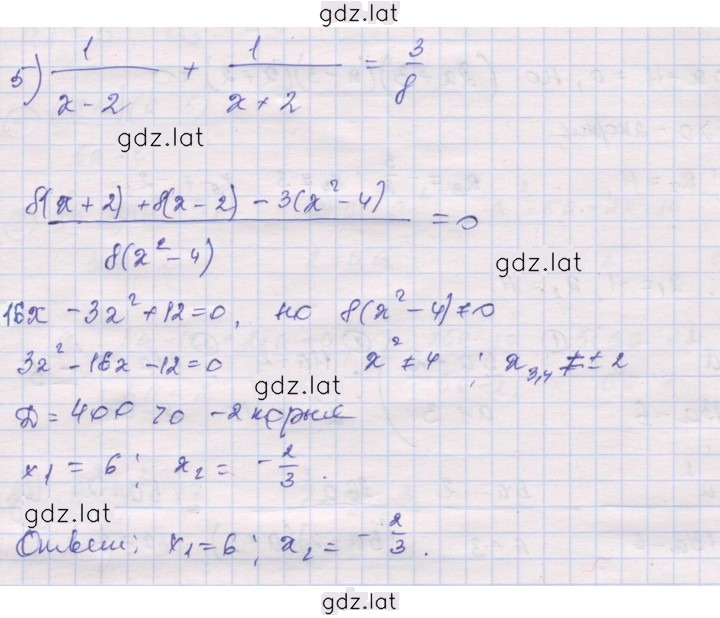 gdz.lat
5) 1/(x-2) + 1/(x+2) = 3/8
gdz.lat
(8(x+2) + 8(x-2) - 3(x²-4))/(8(x²-4)) = 0
gdz.lat
16x - 3x² + 12 = 0, но 8(x²-4) ≠ 0
3x² - 16x - 12 = 0 x² ≠ 4 ; x₃,₄ ≠ ± 2
gdz.lat
D = 400 > 0 - 2 корня
x₁ = 6 ; x₂ = -2/3.
gdz.lat
Ответ: x₁ = 6 ; x₂ = -2/3.
gdz.lat